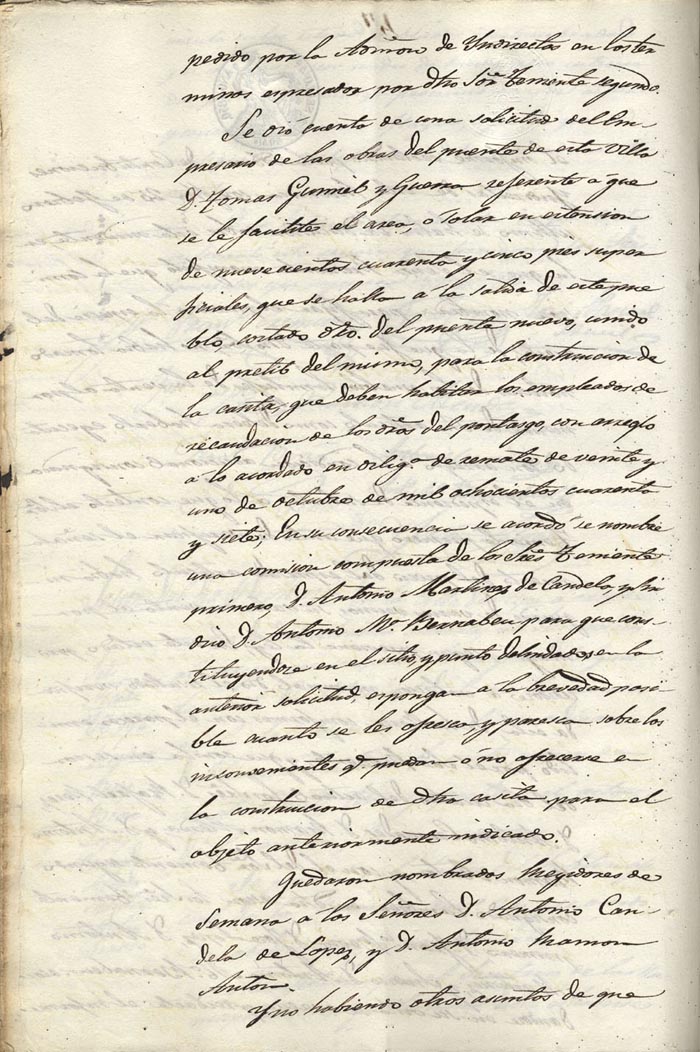 pedido por la Admon de Yndirectas en los ter
minos espresados por dho Sor. Teniente segundo.
Se dió cuenta de una solicitud del Em-
presario de las obras del puente de esta Villa
D. Tomas Gumiel y Guerra referente á que
se le facilite el area, ó solar en estension
de nuevecientos cuarenta y cinco pies super
ficiales, que se halla á la salida de este pue
blo costado dro. del puente nuevo, unido
al pretil del mismo, para la construicion de
la casita, que deben habitar los empleados de
recaudacion de los dros del portasgo, con arreglo
á lo acordado en dilig.a de remate de veinte y
uno de octubre de mil ochocientos cuarenta
y siete; En su consecuencia se acordó se nombre
una comision compuesta de los Sres. Teniente
primero, D. Antonio Martinez de Candela, y Sin
dico D. Antonio M.a Bernabeu para que cons-
tituyendose en el sitio, y punto deslindados en la
anterior solicitud, espongan á la brevedad posi
ble cuanto se les ofresca, y paresca sobre los
inconvenientes q.e puedan ó no ofrecerse en
la construicion de dha casita para el
objeto anteriormente indicado.
Quedaron nombrados Regidores de
Semana á los Señores D. Antonio Can-
dela de Lopez, y D. Antonio Ramon
Anton.
Y no habiendo otros asuntos de que